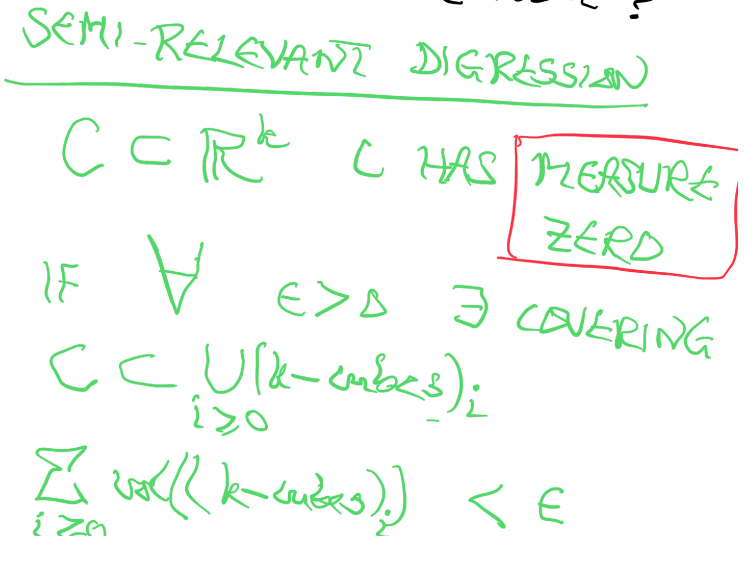 SEMI-RELEVANT DIGRESSION
C ⊂ ℝ^k C HAS MEASURE
ZERO
IF ∀ ϵ>0 ∃ COVERING
C ⊂ ⋃_{i≥0} (k-cubes)_i
∑_{i≥0} vol((k-cubes)_i) < ϵ